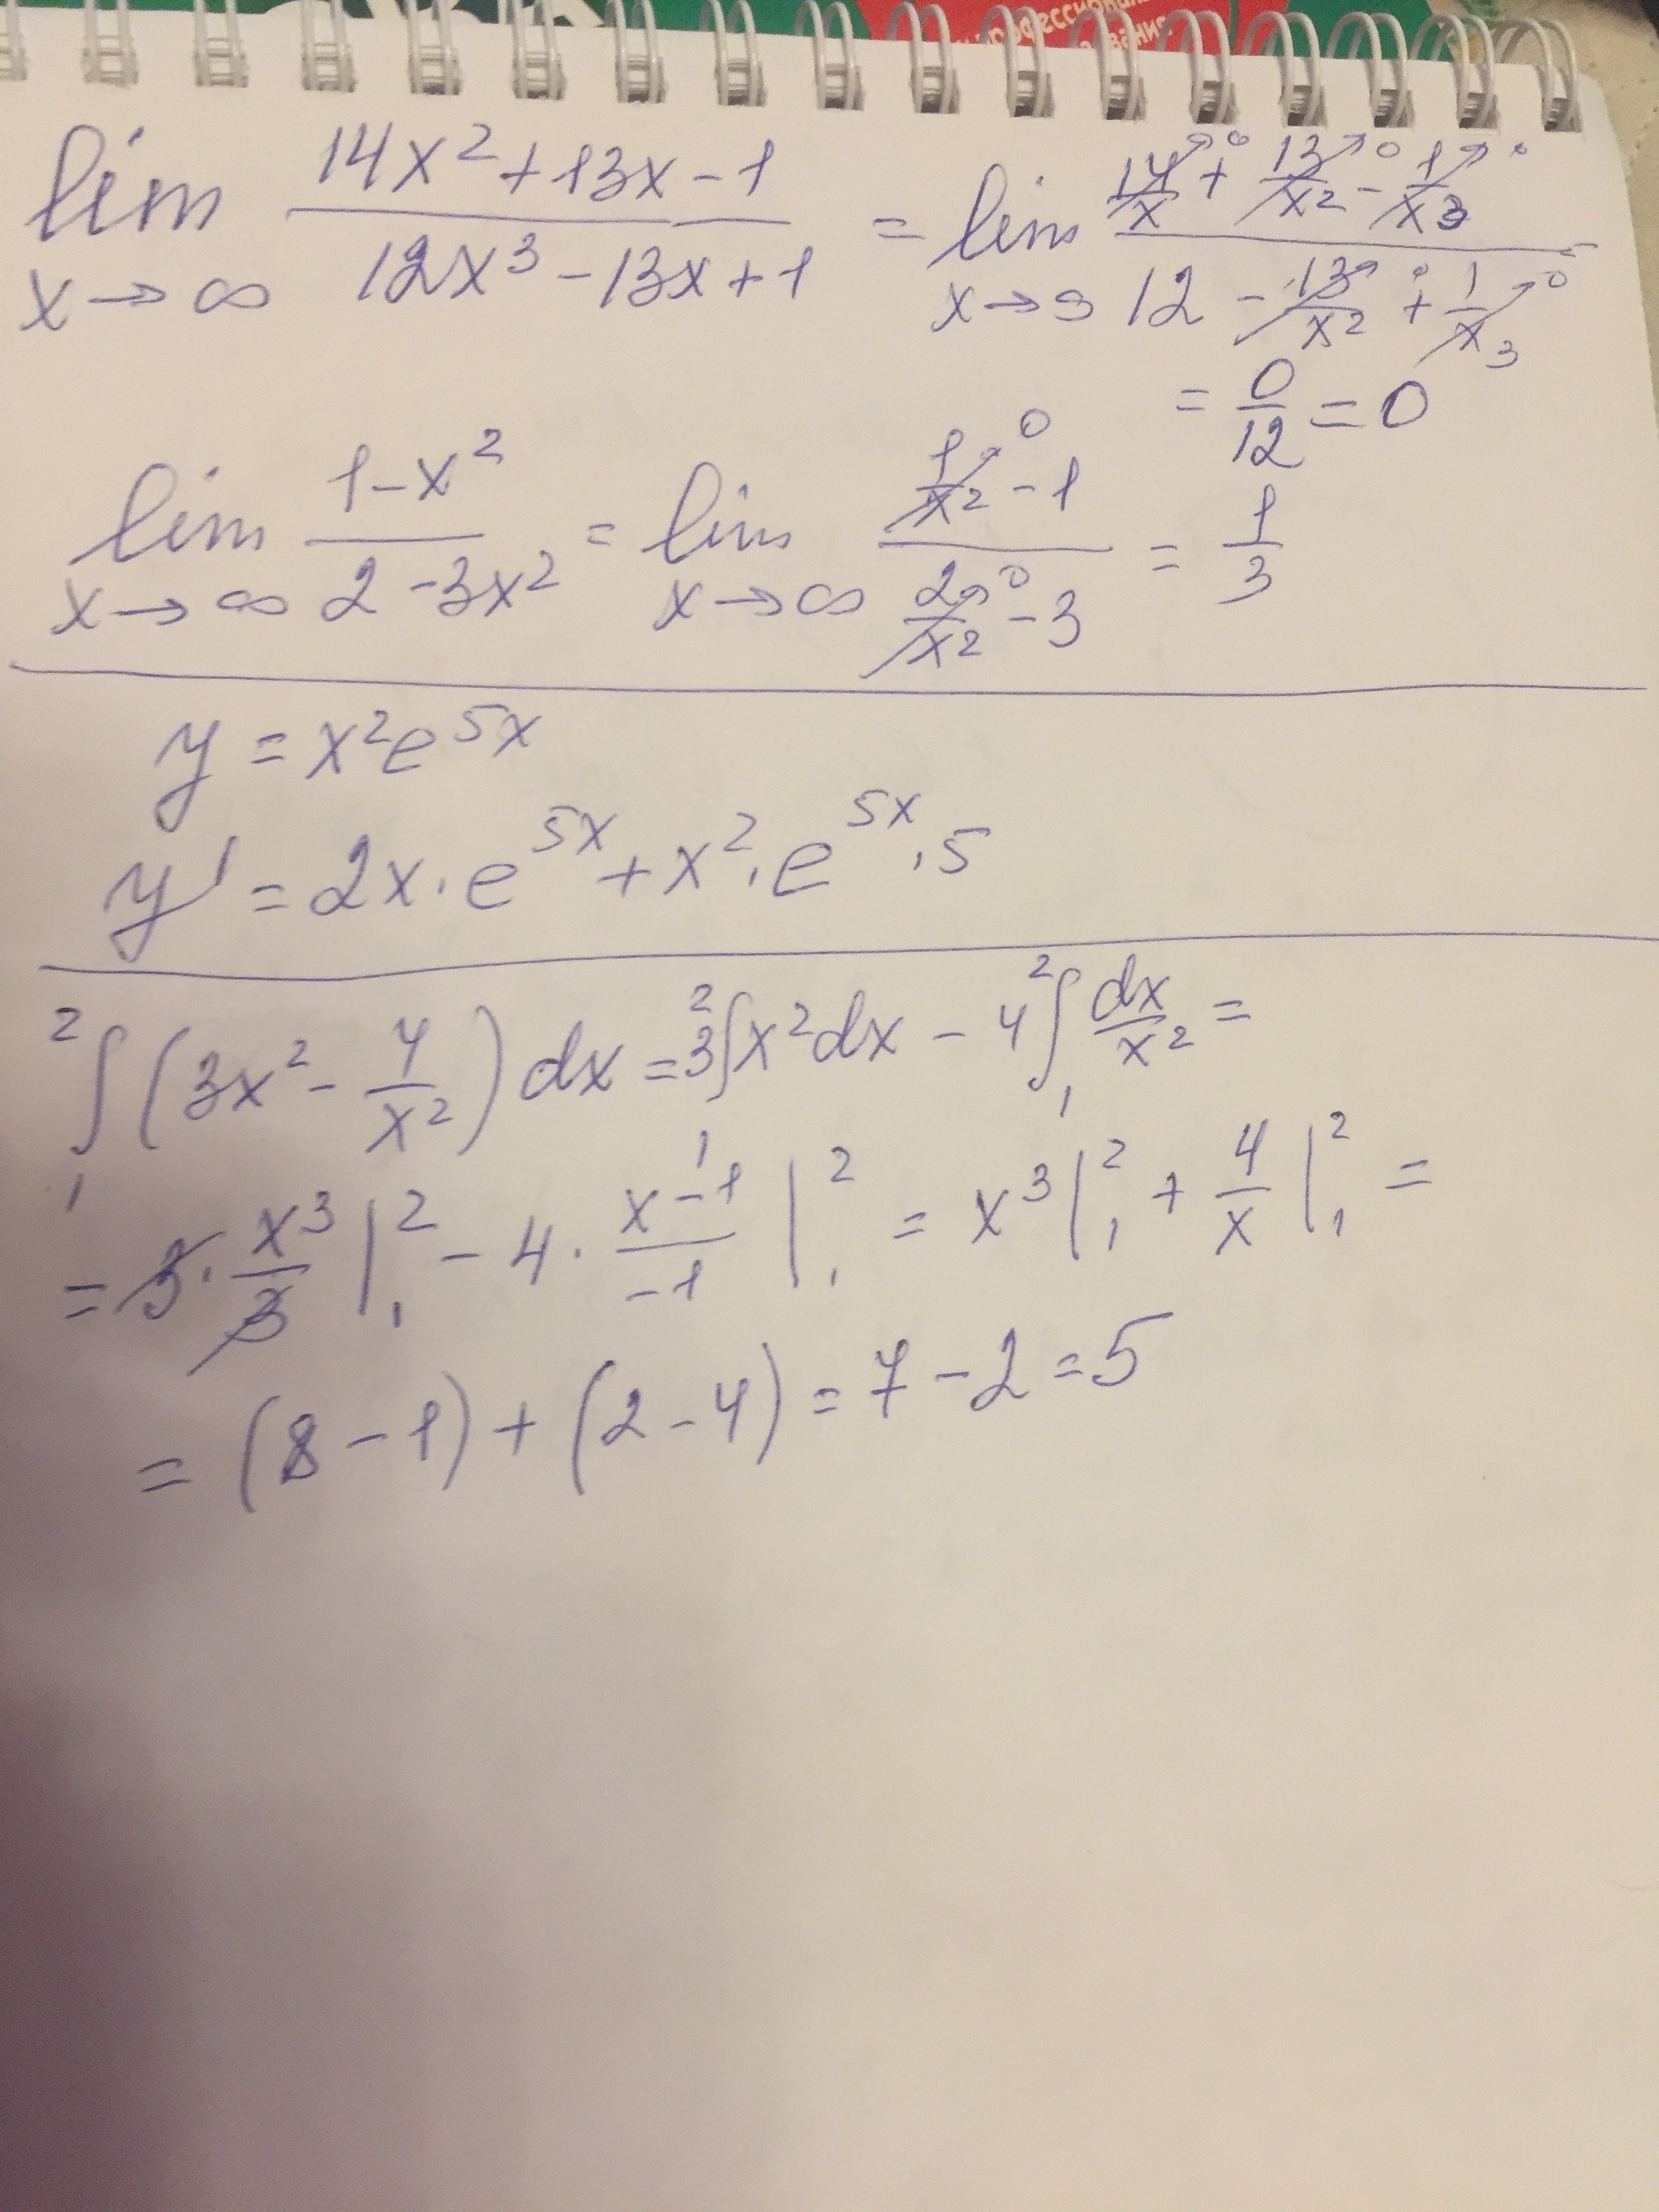 lim x→∞ (14x² + 13x - 1)/(12x³ - 13x + 1) = lim x→∞ (14/x →0 + 13/x² →0 - 1/x³ →0)/(12 - 13/x² →0 + 1/x³ →0)
= 0/12 = 0
lim x→∞ (1-x²)/(2-3x²) = lim x→∞ (1/x² →0 - 1)/(2/x² →0 - 3) = 1/3
y = x²e^(5x)
y' = 2x · e^(5x) + x² · e^(5x) · 5
∫₁² (3x² - 4/x²) dx = 3∫₁² x²dx - 4∫₁² dx/x² =
= 3 · x³/3 |₁² - 4 · x⁻¹/-1 |₁² = x³|₁² + 4/x |₁² =
= (8 - 1) + (2 - 4) = 7 - 2 = 5